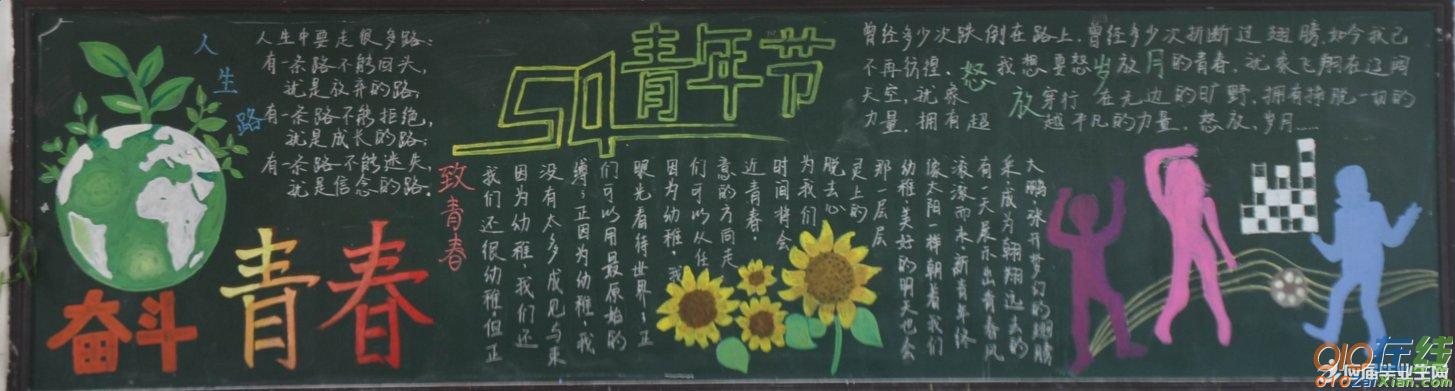 人生路
人生中要走很多路:
有一条路不能回头,
就是放弃的路;
有一条路不能拒绝,
就是成长的路;
有一条路不能迷失,
就是信念的路。
奋斗
青春
54青年节
曾经多少次跌倒在路上,曾经多少次折断过翅膀,如今我已
不再彷徨。我想要怒放的青春,就象飞翔在辽阔
天空,就象穿行在无边的旷野,拥有挣脱一切的
力量。拥有超越平凡的力量。怒放,岁月……
怒放岁月
致青春
我们还很幼稚,但正
因为幼稚,我们还
没有太多成见与束
缚;正因为幼稚,我
们可以用最原始的
眼光看待世界;正
因为幼稚,我
们可以从任
意的方向走
近青春,
时间将会
为我们
脱去心
灵上的
那一层层
幼稚,美好的明天也会
像太阳一样朝着我们
滚滚而来,新青年终
有一天展示出青春风
采,成为翱翔远去的
大鹏,张开梦幻的翅膀
010在线
应届毕业生网